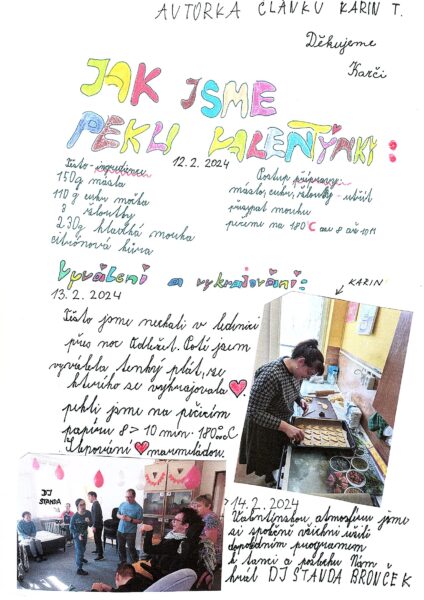 AUTORKA ČLÁNKU KARIN T.
Děkujeme
Karči
JAK JSME
PEKLI VALENTÝNKY:
12.2.2024
Těsto - ingredience
150g másla
110 g cukr moučka
3 žloutky
230g hladká mouka
citrónová kůra
Postup přípravy:
máslo, cukr, žloutky - utřít
přisypat mouku
pečeme na 180°C asi 8 až 10 M
Vyválení a vykrajování:
KARIN
13.2.2024
Těsto jsme nechali v lednici
přes noc odležet. Poté jsem
vyválela tenký plát, ze
kterého se vykrajovala ❤.
pekli jsme na pečícím
papíru 8 > 10 min. 180°C
Slepování ❤ marmeládou.
DJ
STANDA
> 14.2.2024
Valentínskou atmosféru jsme
si společně všichni užili
dopoledním programem
k tanci a poslechu Nám
hrál DJ STANDA BRONČEK